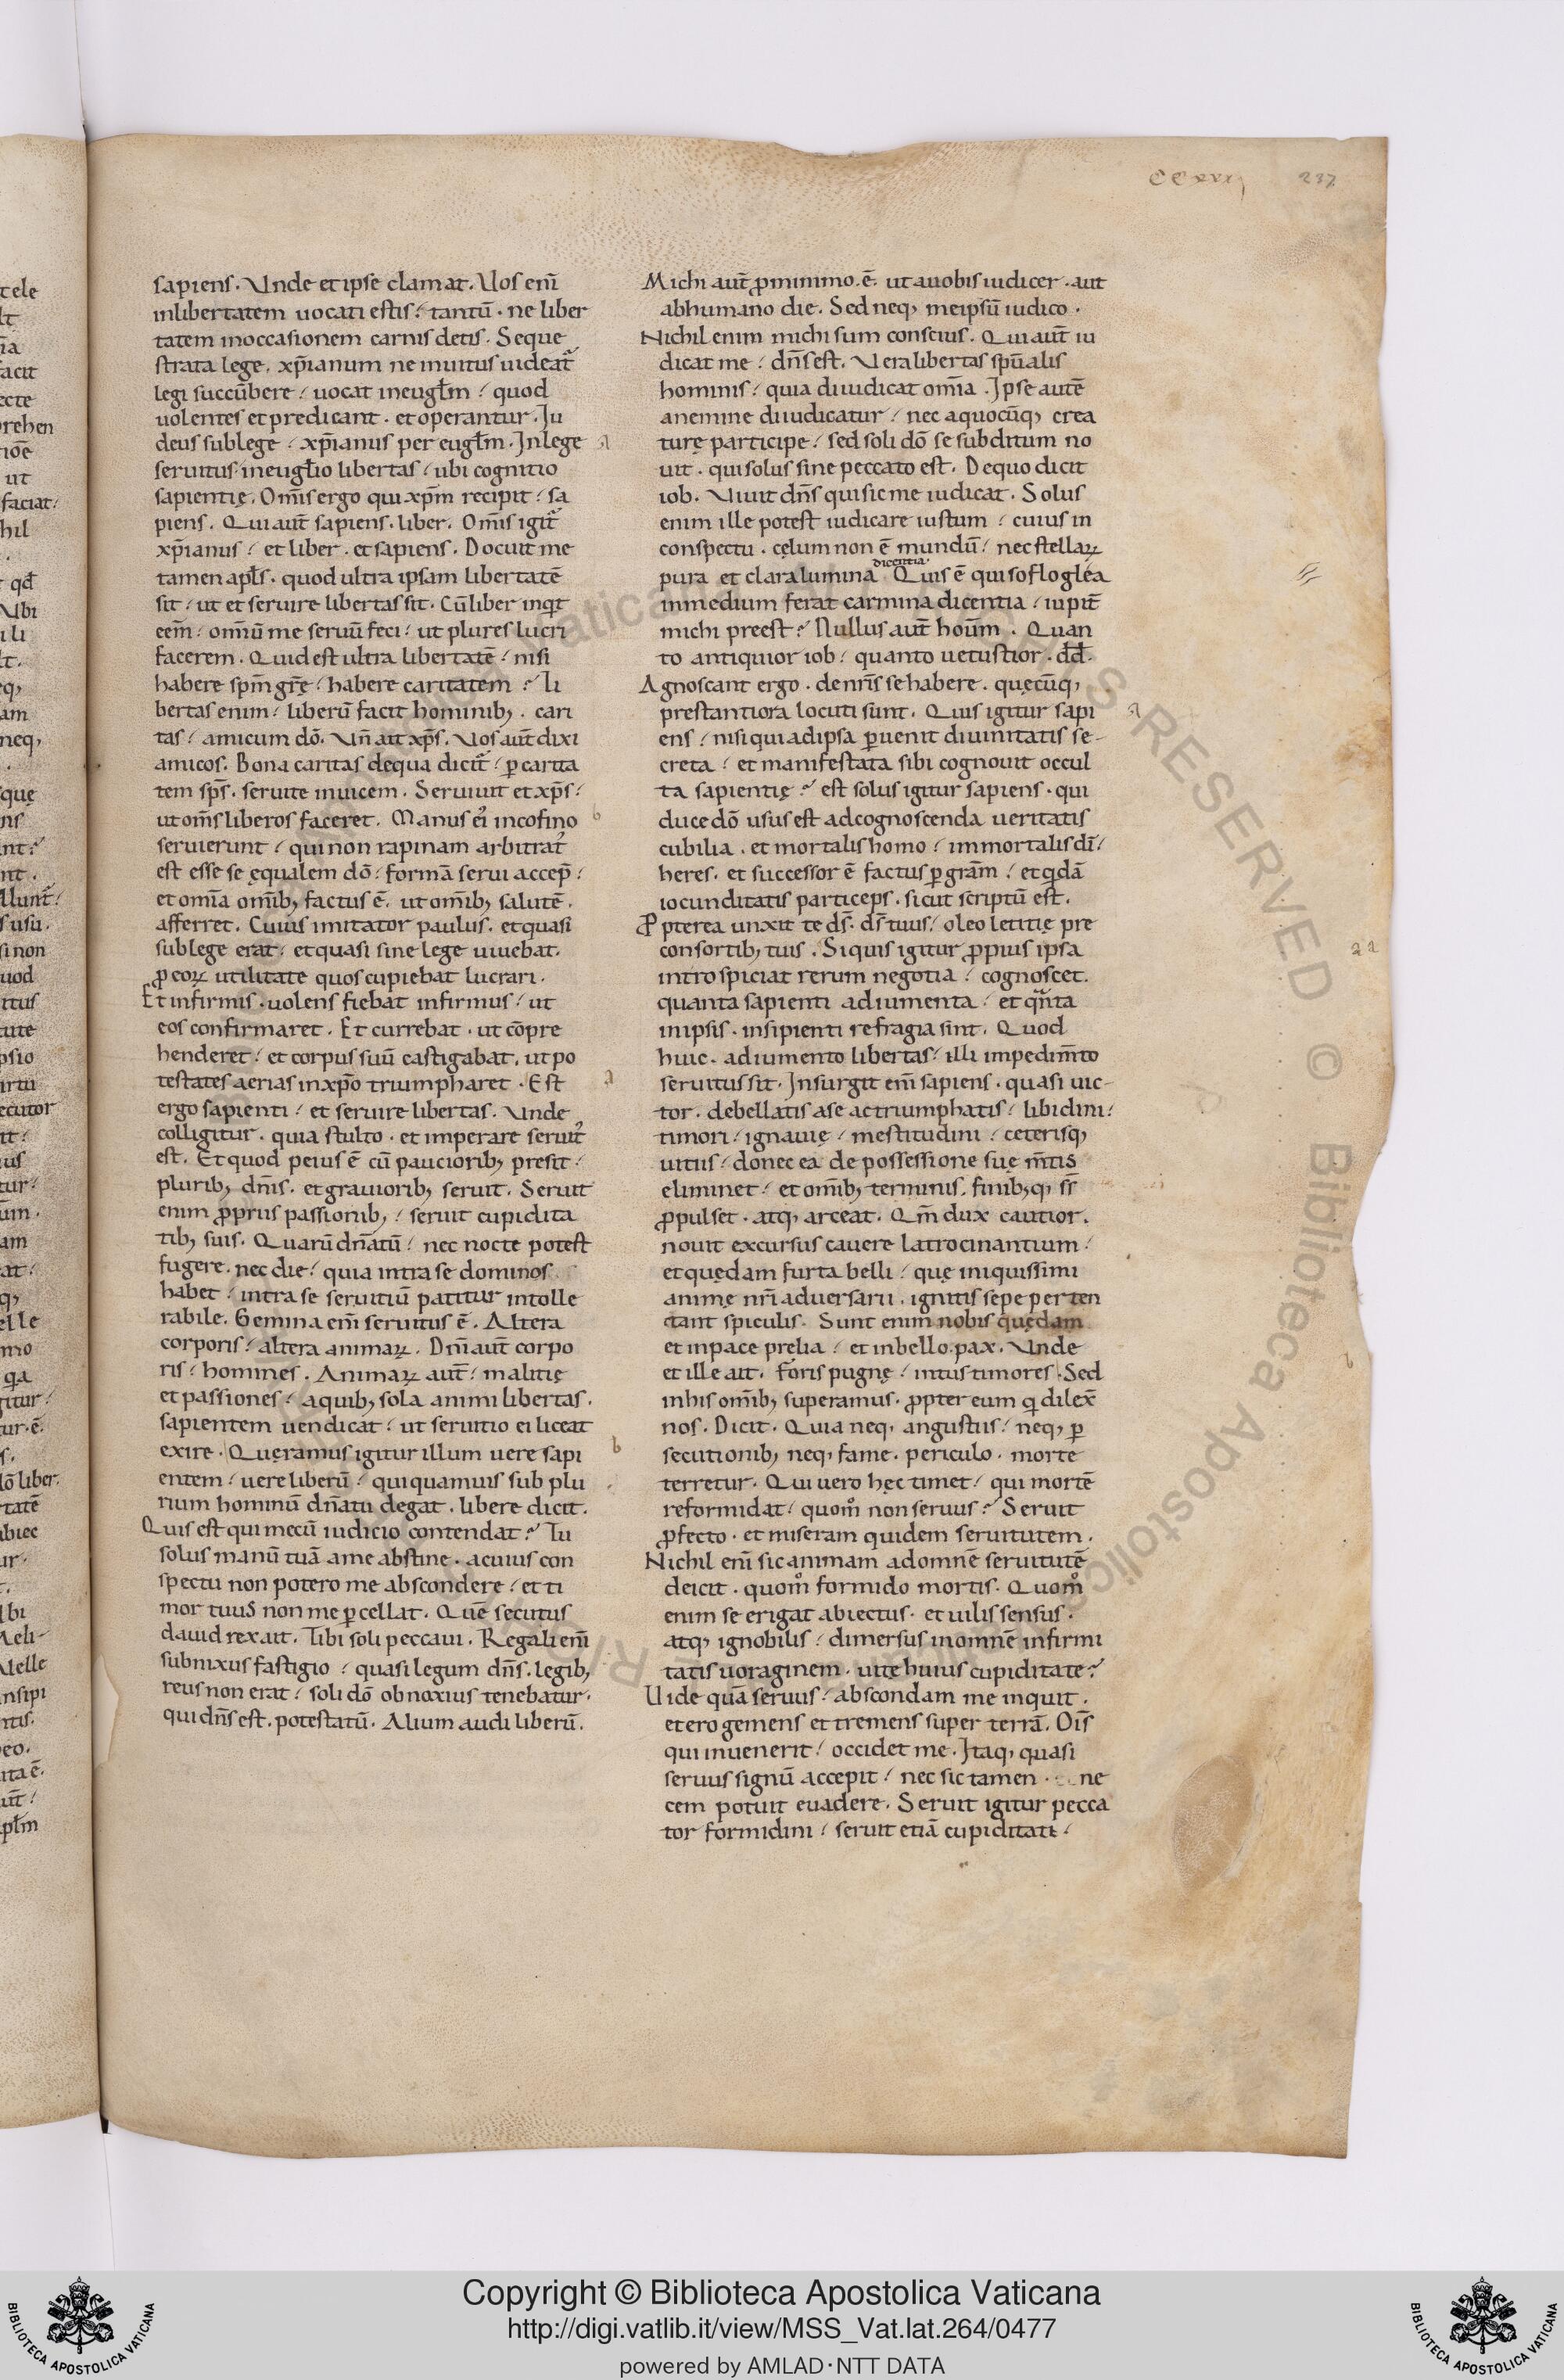 CCxvxj 237
sapiens. Unde et ipse clamat. Uos eni̅
inlibertatem uocati estis / tantu̅ . ne liber
tatem inoccasionem carnis detis. Seque
strata lege, xp̅ianum ne inuitus uideat᷑
legi succu̅bere / uocat ineugłm / quod
uolentes et predicant . et operantur. Iu
deus sublege / xp̅ianus per eugłm. Inlege
seruitus ineugłio libertas / ubi cognitio
sapientię. Om̅s ergo qui xp̅m recipit / sa
piens. Qui aut̅ sapiens . liber. Om̅s igit᷑
xp̅ianus / et liber . et sapiens. Docuit me
tamen apłs . quod ultra ipsam libertate̅
sit / ut et seruire libertas sit. Cu̅ liber inqͥt
eem̅ / omiu̅ me seruu̅ feci / ut plures lucri
facerem. Quid est ultra libertate̅ / nisi
habere spm̅ gr̅e / habere caritatem ? Li
bertas enim / liberu̅ facit hominibꝫ . cari
tas / amicum do̅. Un̅ ait xp̅s. Uos aut̅ dixi
amicos. Bona caritas dequa dicit᷑ / ꝑ carita
tem sp̅s . seruite inuicem. Seruiuit et xp̅s /
ut om̅s liberos faceret. Manus ei᷒ incofino
seruierunt / qui non rapinam arbitrat᷒
est esse se ęqualem do̅ / forma̅ serui accep̅ /
et omi̅a omi̅bꝫ factus e̅ . ut omi̅bꝫ salute̅ .
afferret. Cuius imitator paulus . et quasi
sublege erat / et quasi sine lege uiuebat.
ꝓ eoꝝ utilitate quos cupiebat lucrari.
Et infirmis . uolens fiebat infirmus / ut
eos confirmaret. Et currebat . ut co̅pre
henderet / et corpus suu̅ castigabat . ut po
testates aerias inxp̅o triumpharet . Est
ergo sapienti / et seruire libertas. Unde
colligitur . quia stulto . et imperare seruit᷒
est. Et quod peius e̅ cu̅ paucioribꝫ presit /
pluribꝫ dn̅is . et grauioribꝫ seruit. Seruit
enim ꝓpriis passionibꝫ / seruit cupidita
tibꝫ suis. Quaru̅ dn̅atu̅ / nec nocte potest
fugere . nec die / quia intra se dominos
habet / intra se seruitiu̅ patitur intolle
rabile. Gemina eni̅ seruitus e̅ . Altera
corporis / altera animaꝝ . Dn̅i aut̅ corpo
ris / homines . Animaꝝ aut̅ / malitię
et passiones / aquibꝫ sola animi libertas .
sapientem uendicat / ut seruitio ei liceat
exire . Queramus igitur illum uere sapi
entem / uere liberu̅ / qui quamuis sub plu
rium hominu̅ dn̅atu degat . libere dicit.
Quis est qui mecu̅ iudicio contendat ? Tu
solus manu̅ tua̅ a me abstine . acuius con
spectu non potero me abscondere / et ti
mor tuus non me ꝑcellat. Que̅ secutus
dauid rex ait. Tibi soli peccaui. Regali eni̅
subnixus fastigio / quasi legum dn̅s . legibꝫ
reus non erat / soli do̅ obnoxius tenebatur.
qui dn̅s est . potestatu̅ . Alium audi liberu̅.
Michi aut̅ ꝓminimo . e̅ . ut auobis iudicer . aut
abhumano die. Sed neqꝫ meipsu̅ iudico .
Nichil enim michi sum conscius. Qui aut̅ iu
dicat me / dn̅s est. Uera libertas spu̅alis
hominis / quia diiudicat omi̅a . Ipse aute̅
anemine diiudicatur / nec a quocu̅qꝫ crea
turę participe / sed soli do̅ se subditum no
uit . qui solus sine peccato est. Dequo dicit
iob. Uiuit dn̅s qui sic me iudicat. Solus
enim ille potest iudicare iustum / cuius in
conspectu . cęlum non e̅ mundu̅ / nec stellaꝝ
pura et clara lumina dicentia Quis e̅ qui sofloglea
inmedium ferat carmina dicentia / iupit̅
michi preest ? Nullus aut̅ hou̅m . Quan
to antiquior iob / quanto uetustior . dd̅.
Agnoscant ergo . de nri̅s se habere . quęcu̅qꝫ
prestantiora locuti sunt. Quis igitur sapi
ens / nisi qui adipsa ꝑuenit diuinitatis se-
creta / et manifestata sibi cognouit occul
ta sapientię ? est solus igitur sapiens . qui
duce do̅ usus est adcognoscenda ueritatis
cubilia . et mortalis homo / immortalis di̅ /
heres . et successor e̅ factus ꝑ gra̅m / et qͥda̅
iocunditatis particeps . sicut scriptu̅ est.
Ꝓpterea unxit te ds̅ . ds̅ tuus / oleo letitię pre
consortibꝫ tuis . Si quis igitur ꝓpius ipsa
introspiciat rerum negotia / cognoscet.
quanta sapienti adiumenta / et qͣnta
inipsis . insipienti refragia sint. Quod
huic . adiumento libertas / illi impedim̅to
seruitus sit. Insurgit eni̅ sapiens . quasi uic-
tor . debellatis ase ac triumphatis / libidini /
timori / ignauię / mestitudini / ceterisqꝫ
uitiis / donec ea de possessione suę m̅tis
eliminet / et omi̅bꝫ terminis . finibꝫqꝫ sr̅
ꝓpulset . atqꝫ arceat. Qm̅ dux cautior .
nouit excursus cauere latrocinantium /
et quędam furta belli / quę iniquissimi
animę nr̅i aduersarii . ignitis sepe per ten
ctant spiculis. Sunt enim nobis quędam
et inpace prelia / et inbello pax. Unde
et ille ait. Foris pugnę / intus timores . Sed
inhis omi̅bꝫ superamus . ꝓpter eum qͥ dilex̅
nos. Dicit. Quia neqꝫ angustus / neqꝫ ꝑ
secutionibꝫ neqꝫ fame . periculo . morte
terretur. Qui uero hęc timet / qui morte̅
reformidat / quom̊ non seruus ? Seruit
ꝓfecto . et miseram quidem seruitutem .
Nichil eni̅ sic animam adomne̅ seruitute̅
deicit . quom̊ formido mortis. Quom̊
enim se erigat abiectus . et uilis sensus .
atqꝫ ignobilis / dimersus inomne̅ infirmi
tatis uoraginem . uitę huius cupiditate ?
Uide qua̅ seruus / abscondam me inquit .
et ero gemens et tremens super terra̅. Ois̅
qui inuenerit / occidet me. Itaqꝫ quasi
seruus signu̅ accepit / nec sic tamen . ne
cem potuit euadere. Seruit igitur pecca
tor formidini / seruit etia̅ cupiditati /
Copyright © Biblioteca Apostolica Vaticana
http://digi.vatlib.it/view/MSS_Vat.lat.264/0477
powered by AMLAD·NTT DATA